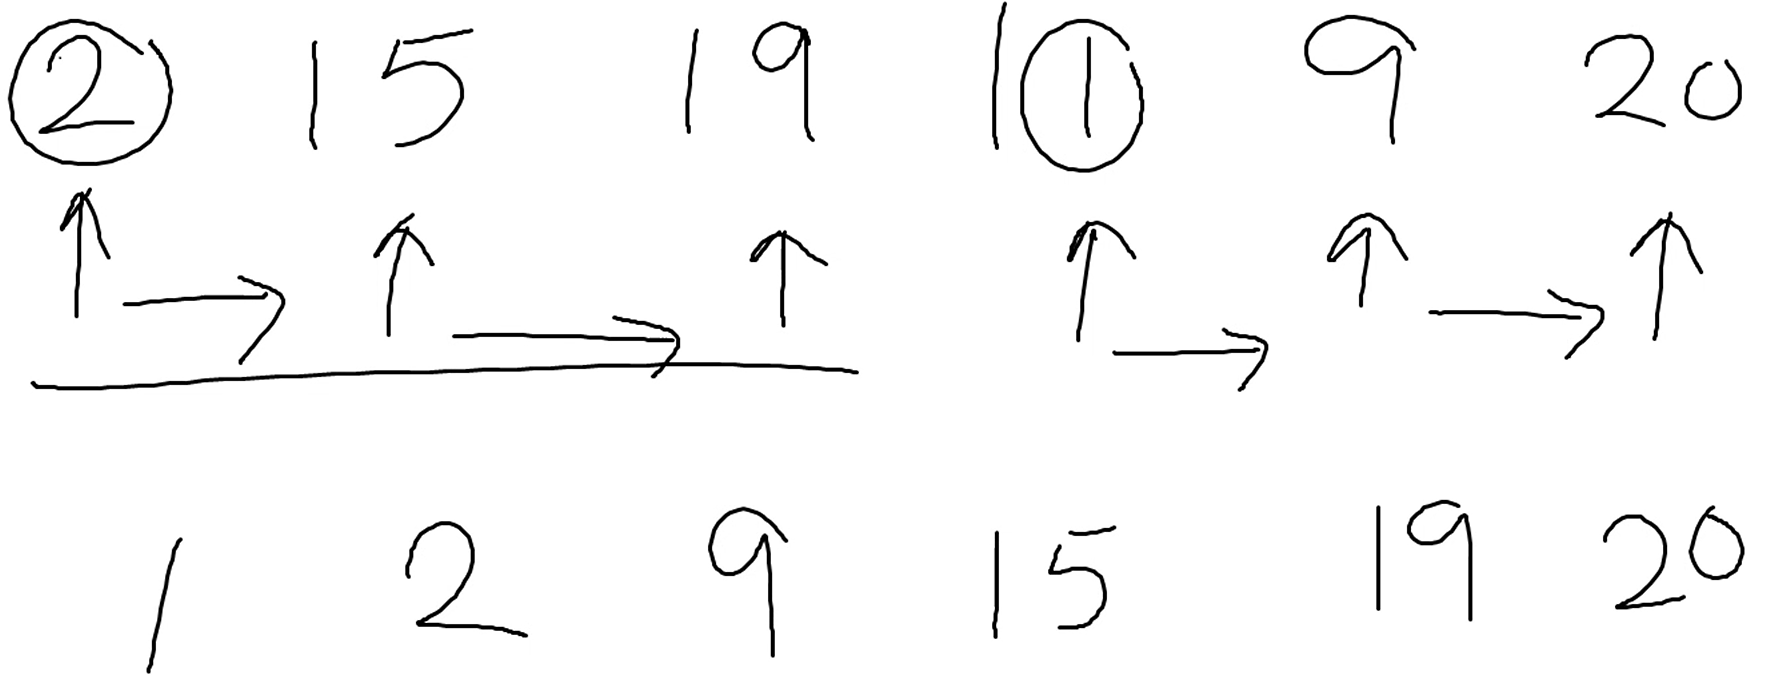 2 15 19 | 1 9 20
1 2 9 15 19 20